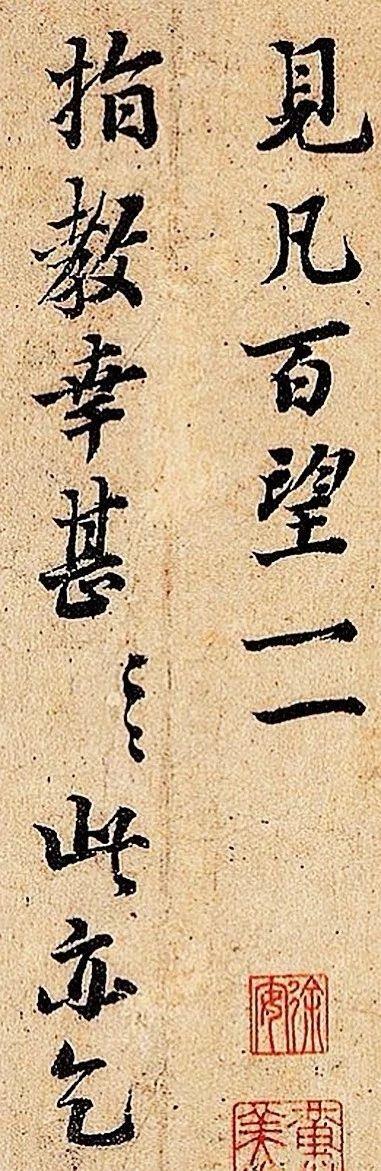 見凡百望一一
指教幸甚〻〻此亦乞
徐安